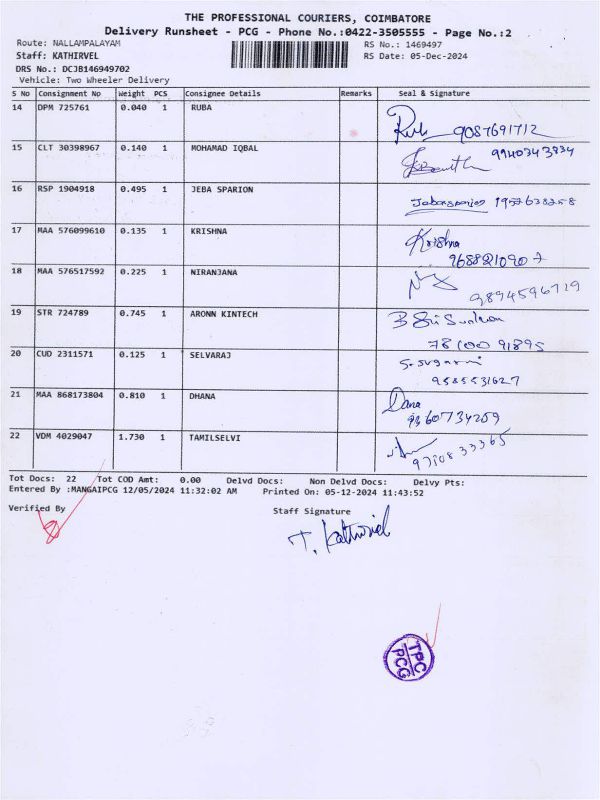 THE PROFESSIONAL COURIERS, COIMBATORE
Delivery Runsheet - PCG - Phone No.:0422-3505555 - Page No.:2
Route: NALLAMPALAYAM RS No.: 1469497
Staff: KATHIRVEL RS Date: 05-Dec-2024
DRS No.: DCJB146949702
Vehicle: Two Wheeler Delivery
S No Consignment No Weight PCS Consignee Details Remarks Seal & Signature
14 DPM 725761 0.040 1 RUBA
9087691712
15 CLT 30398967 0.140 1 MOHAMAD IQBAL
9940343834
16 RSP 1904918 0.495 1 JEBA SPARION
17 MAA 576099610 0.135 1 KRISHNA Krishna
18 MAA 576517592 0.225 1 NIRANJANA
9894596719
19 STR 724789 0.745 1 ARONN KINTECH
78100 91895
20 CUD 2311571 0.125 1 SELVARAJ
9585531627
21 MAA 868173804 0.810 1 DHANA Dana
9360734259
22 VDM 4029047 1.730 1 TAMILSELVI
9710833365
Tot Docs: 22 Tot COD Amt: 0.00 Delvd Docs: Non Delvd Docs: Delvy Pts:
Entered By :MANGAIPCG 12/05/2024 11:32:02 AM Printed On: 05-12-2024 11:43:52
Verified By Staff Signature
T. Kathirvel
TPC
PCG